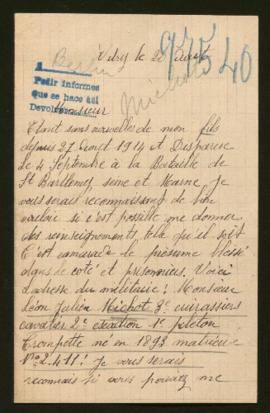 97540
Vitry le 20
Berlin
Pedir Informes
que se hace así
Monsieur
Michot
Etant sans nouvelles de mon fils
depuis 27 Aout 1914 et Disparue
le 4 Septembre à la Bataille de
St Barllemef seine et Marne Je
vous serais reconnaissant de bien
vouloir si c'est possible me donner
des renseignements, tels qu'il soit
C'est camarade le presume blessé
dans le coté et prisonniers. Voici
L'adresse du militaire! Monsieur
Léon Julien Michot 3e cuirassiers
cavalier 2e escation 1e peleton
Trompette né en 1893 matricule
No 2.411! Je vous serais
reconnais si vous pouviez me